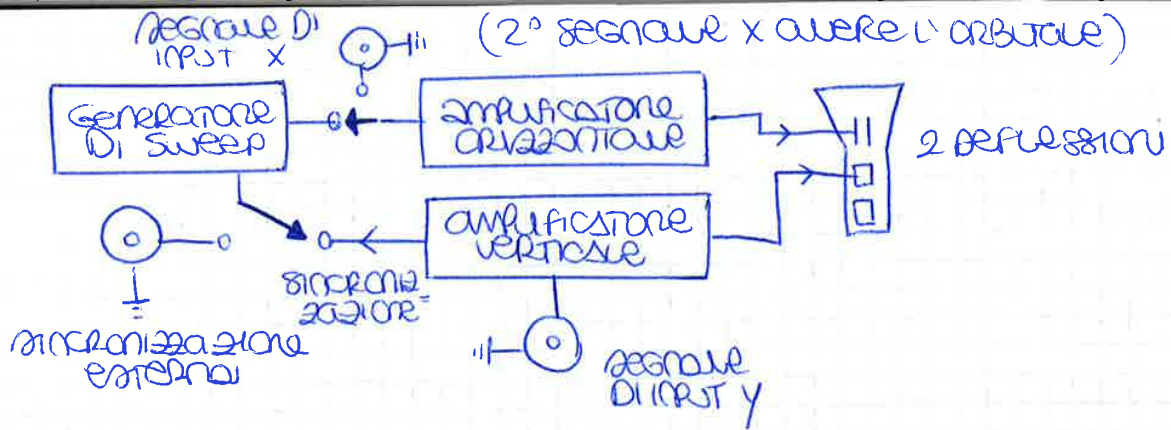 SEGNALE DI
INPUT X
(2° SEGNALE X AVERE L'ORBITALE)
GENERATORE
DI SWEEP
AMPLIFICATORE
ORIZZONTALE
2 DEFLESSIONI
AMPLIFICATORE
VERTICALE
SINCRONIZ=
ZAZIONE
SINCRONIZZAZIONE
ESTERNA
SEGNALE
DI INPUT Y